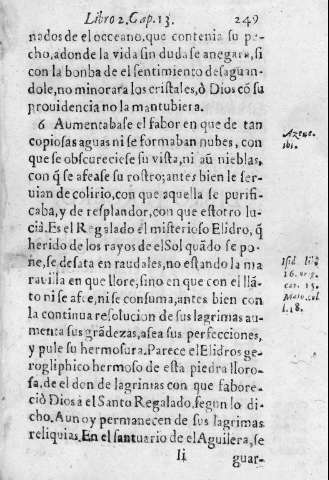 Libro 2. Cap. 13. 249
nados de el occeano, que contenia su pe-
cho, adonde la vida sin duda se anegara, si
con la bonba de el sentimiento desaguan-
dole, no minorara los cristales, ò Dios cõ su
prouidencia no la mantubiera.
6 Aumentabase el fabor en que de tan
copiosas aguas ni se formaban nubes, con
que se obscureciese su vista, ni aũ nieblas,
con q̃ se afease su rostro; antes bien le ser-
uian de colirio, con que aquella se purifi-
caba, y de resplandor, con que estotro lu-
cia. Es el Regalado el misterioso Elidro, q̃
herido de los rayos de el Sol quãdo se po-
ne, se desata en raudales, no estando la ma
ravilla en que llore, sino en que con el llã-
to ni se afee, ni se consuma, antes bien con
la continua resolucion de sus lagrimas au-
menta sus grãdezas, asea sus perfecciones,
y pule su hermosura. Parece el Elidros ge-
rogliphico hermoso de esta piedra lloro-
sa, de el don de lagrimas con que fabore-
ciò Dios à el Santo Regalado, segun lo di-
cho. Aun oy permanecen de sus lagrimas
reliquias. En el santuario de el Aguilera, se
Ii guar-
ibi.
Isid. lib.
16.
cap. 13.
l. 18.